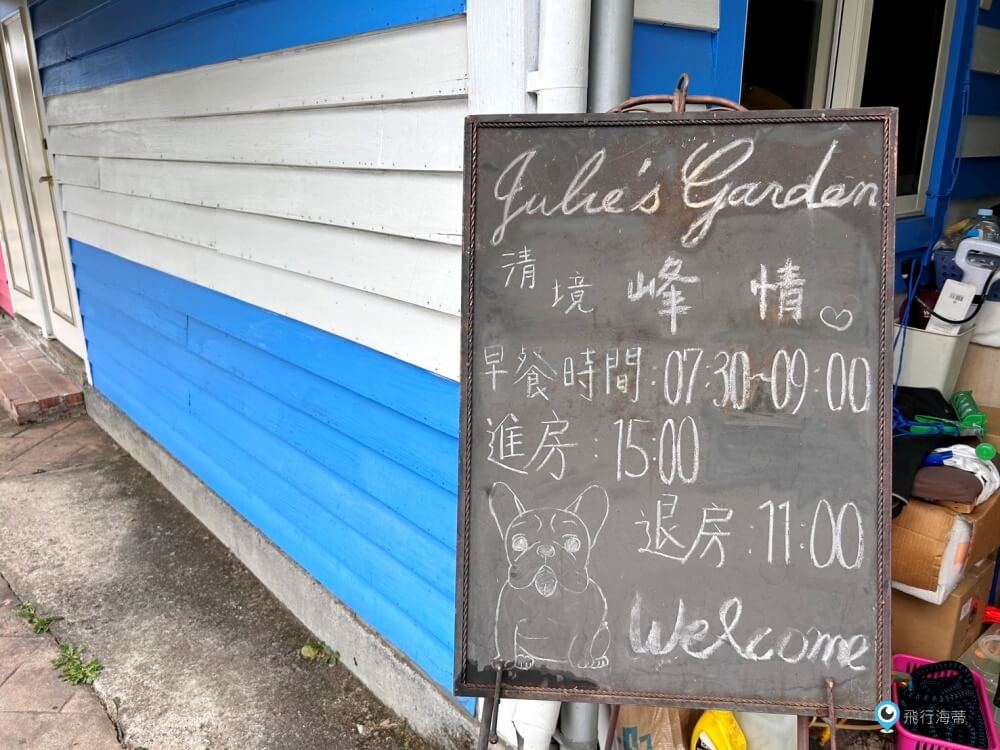 Julie's Garden
清境 峰情♡
早餐時間:07:30~09:00
進房:15:00
退房:11:00
Welcome
飛行海蒂